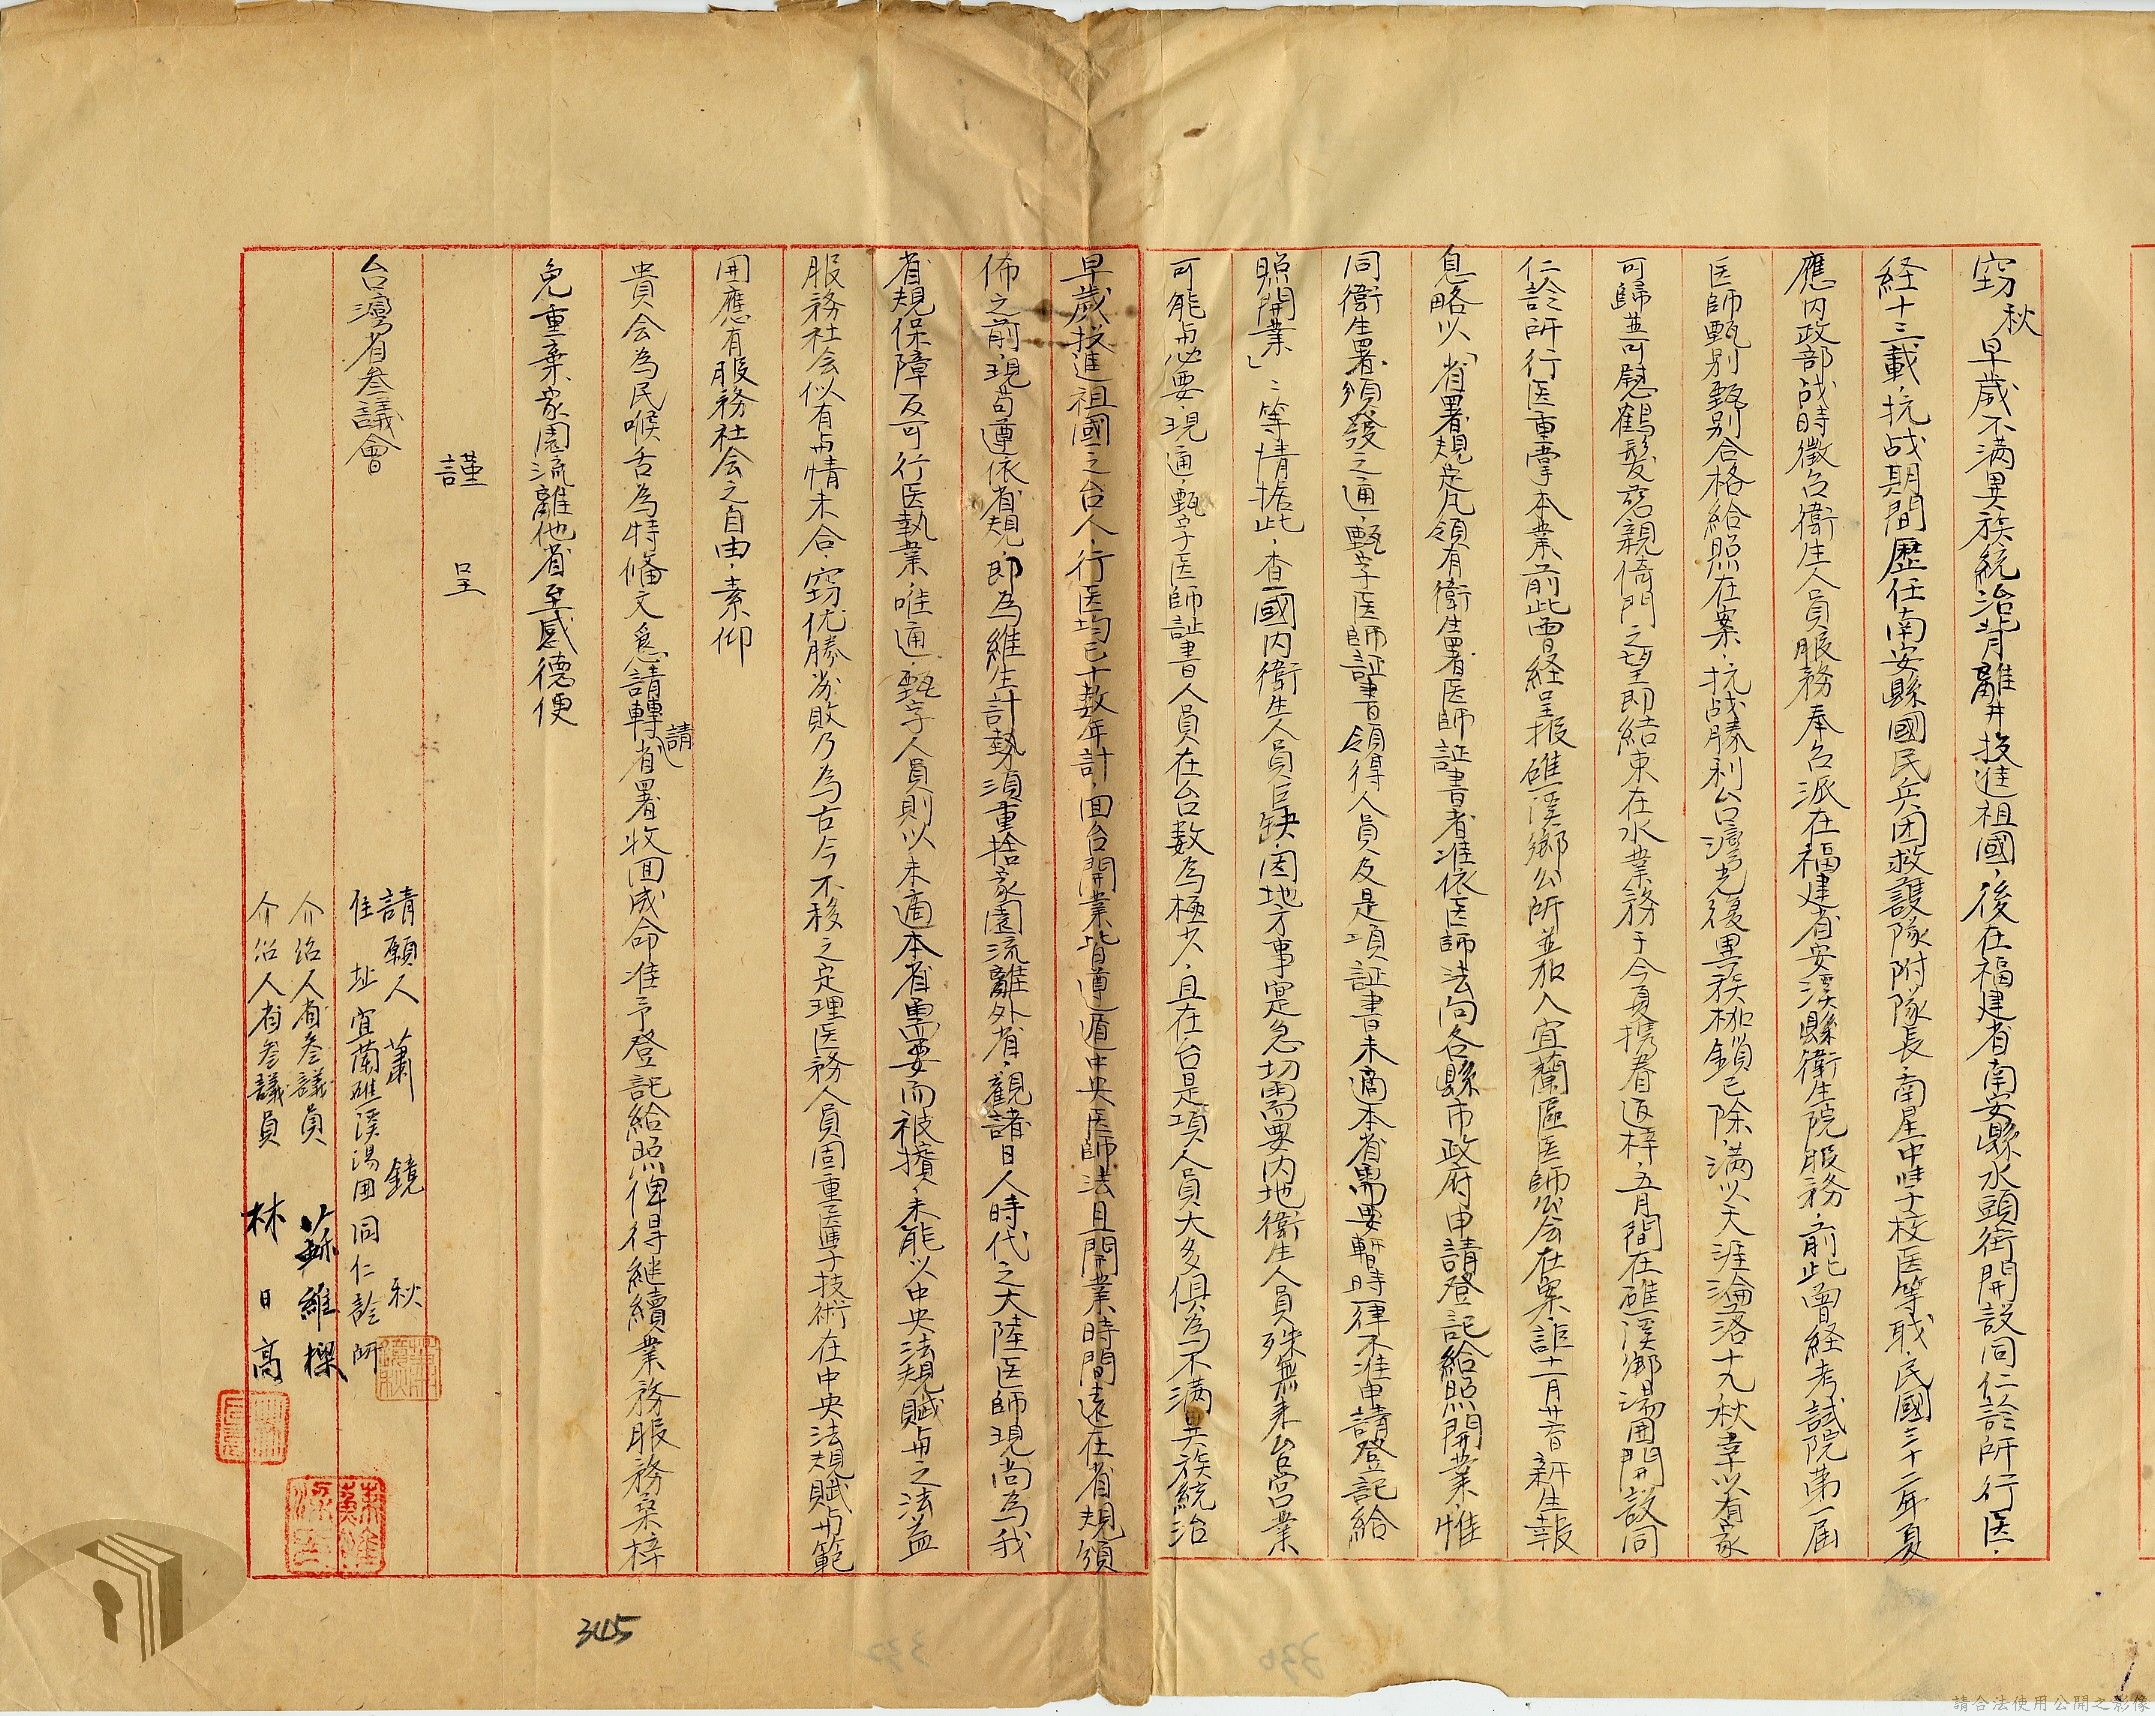 窃秋早歲不满異族統治背離井投進祖國，後在福建省南安縣水頭街開設同仁診所行医，
経十三載，抗战期間歷任南安縣國民兵团救護隊附隊長，南星中学校医等职，民國三十二年夏
應内政部战時徵召衛生人員服務奉召派在福建省安溪縣衛生院服務，前此曾経考試院第一届
医師甄别甄别合格給照在案，抗战勝利台灣光復異族枷鎖已除，满以天涯淪落十九秋幸以有家
可歸並可慰鶴髮慈親倚門之望即結束在水業務于今夏携眷返梓，五月間在礁溪鄉湯囲開設同
仁診所行医重掌本業前此曾経呈报礁溪鄉公所並加入宜蘭區医師公会在案，詎十一月廿日新生報
息略以「省署規定凡領有衛生署医師証書者准依医師法向各縣市政府申請登記給照開業，惟
同衛生署頒發之通，甄字医師証書領得人員及是項証書未適本省需要暫時一律不准申請登記給
照開業」：等情据此，查國内衛生人員巨缺，因地方事寔急切需要内地衛生人員殊無来台营業
可能与必要，現通，甄字医師証書人員在台数為極少，且在台是項人員大多俱為不满異族統治
早歲投進祖國之台人，行医均已十数年計，囬台開業皆遵循中央医師法且開業時間遠在省規頒
佈之前，現苟遵依省規，即為維生計勢須重捨家園流離外省，觀諸日人時代之大陸医師現尚為我
省規保障反可行医執業，唯通，甄字人員則以未適本省需要而被擯，未能以中央法規賦与之法益
服務社会似有与情未合，窃优勝劣敗乃為古今不移之定理医務人員固重医学技術在中央法規賦与範
囲應有服務社会之自由，素仰
貴会為民喉舌為特俻文恳請轉請省署收囬成命准予登記給照俾得継續業務服務桑梓
免重棄家園流離他省至感德便
謹　呈
台灣省叅議會
請願人　蕭鏡秋
住址　宜蘭礁溪湯囲同仁診所
介绍人省叅議員　蘇維樑
介绍人省叅議員　林日高
345
請合法使用公開之影像